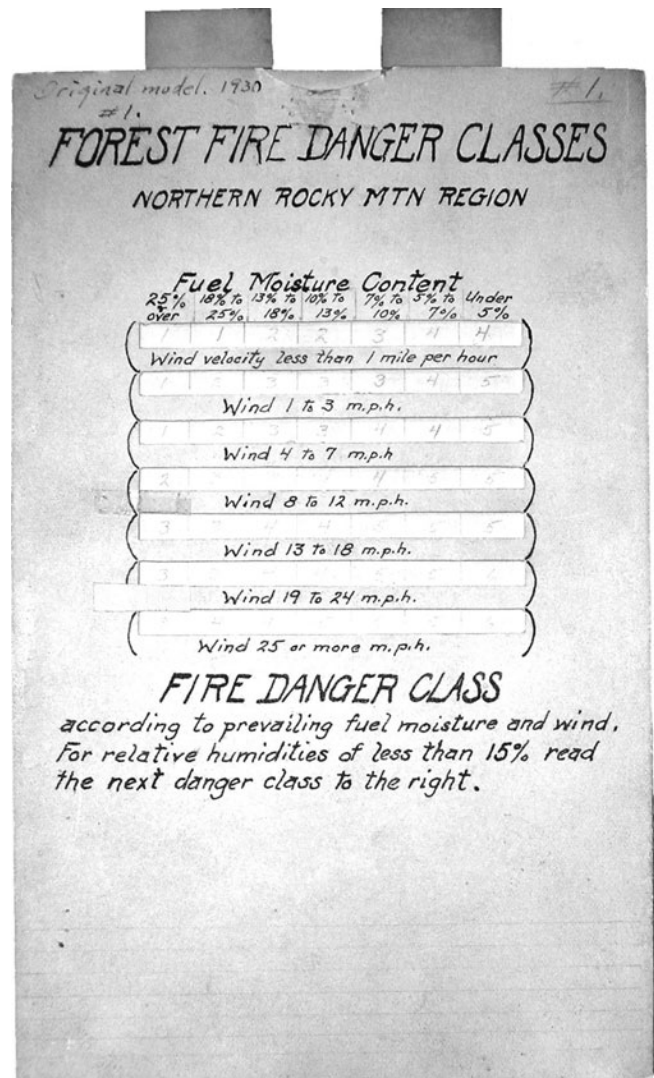 Original model. 1930
#1.
#1.
FOREST FIRE DANGER CLASSES
NORTHERN ROCKY MTN REGION
Fuel Moisture Content
25% 18% to 13% to 10% to 7% to 5% to Under
over 25% 18% 13% 10% 7% 5%
1 1 2 2 3 4 4
Wind velocity less than 1 mile per hour
1 2 3 3 3 4 5
Wind 1 to 3 m.p.h.
1 2 3 3 4 4 5
Wind 4 to 7 m.p.h
2 4 5 5
Wind 8 to 12 m.p.h.
3 3 4 4 5 5 5
Wind 13 to 18 m.p.h.
3
Wind 19 to 24 m.p.h.
Wind 25 or more m.p.h.
FIRE DANGER CLASS
according to prevailing fuel moisture and wind.
For relative humidities of less than 15% read
the next danger class to the right.